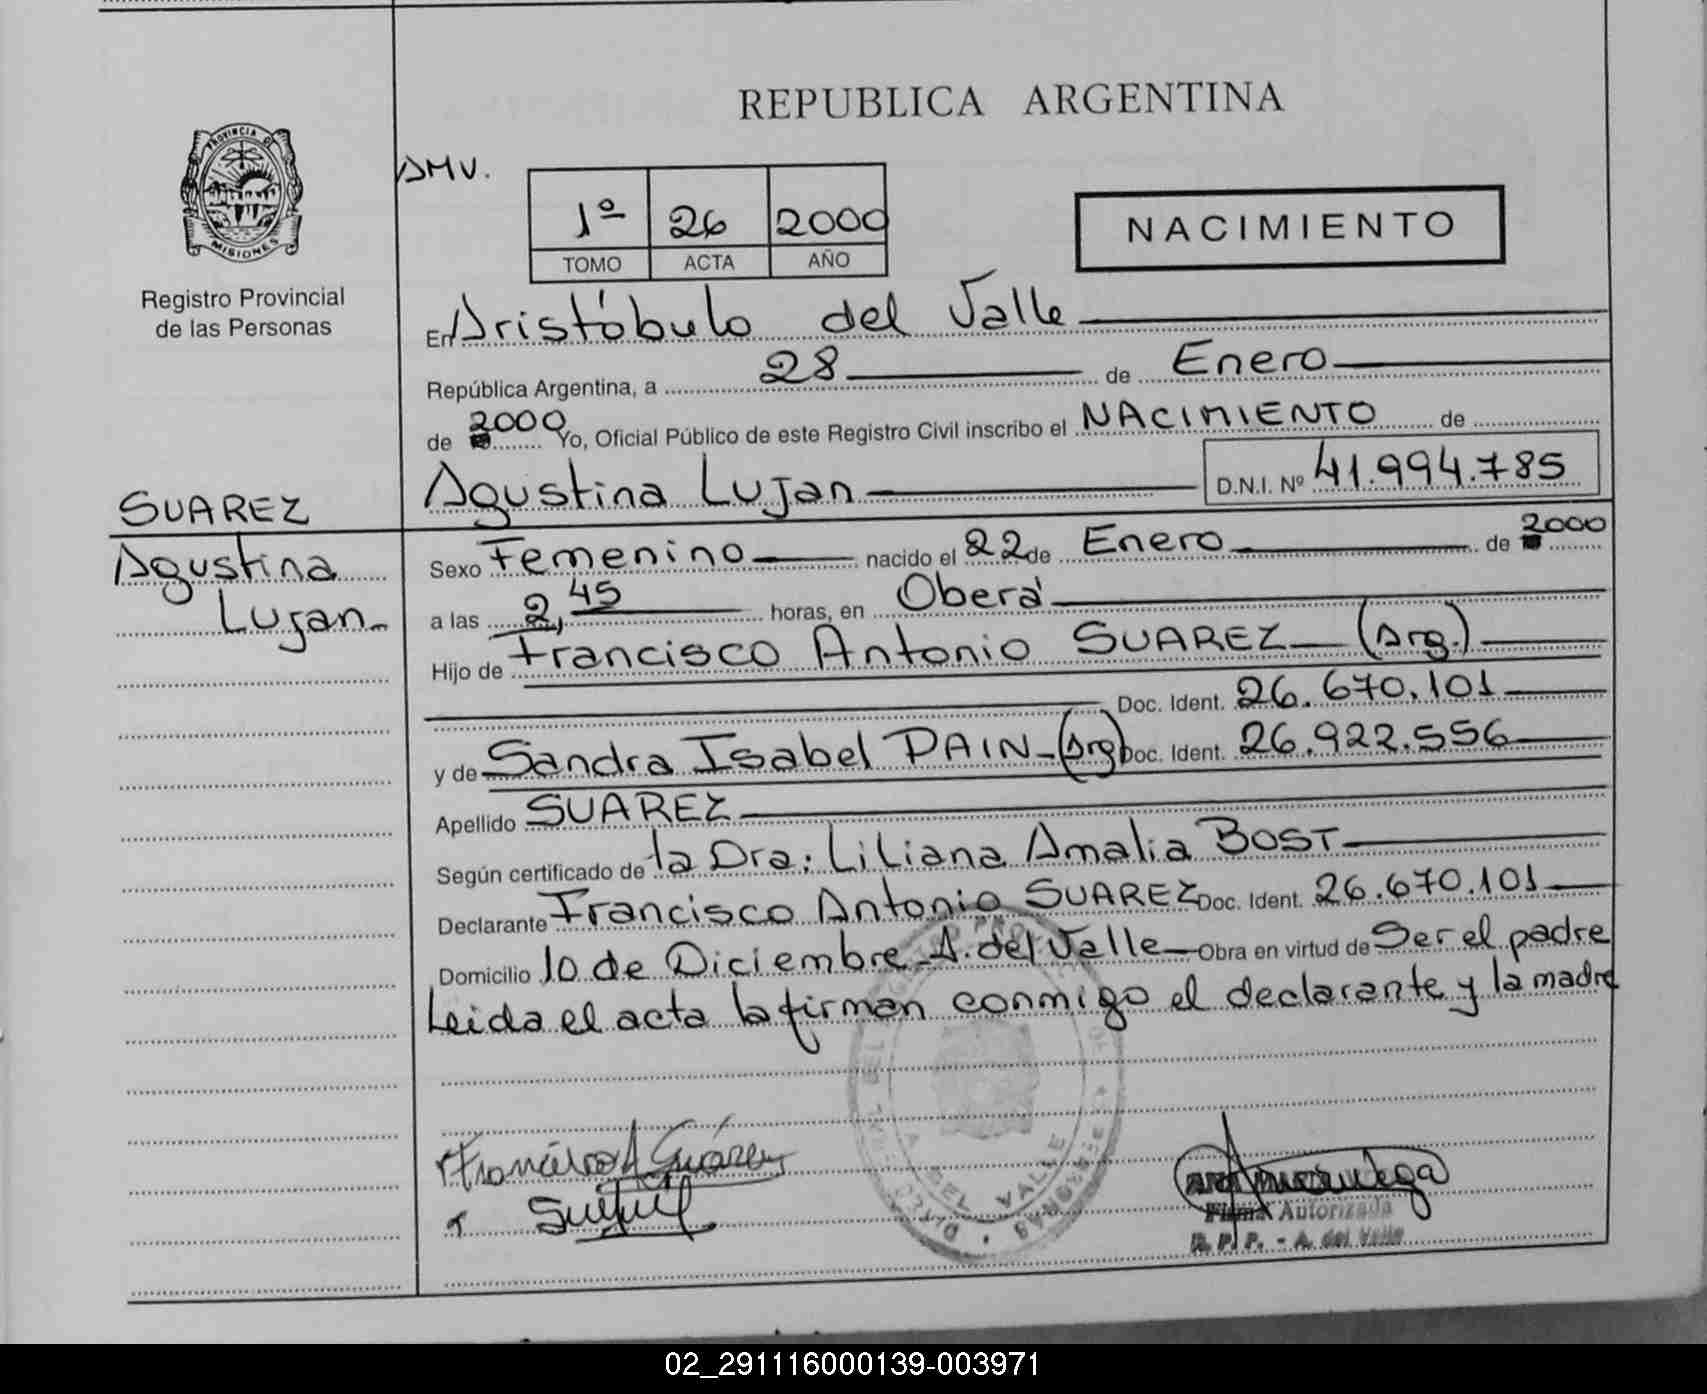 REPUBLICA ARGENTINA
PROVINCIA DE
MISIONES
Registro Provincial
de las Personas
AMV.
1º 26 2000
TOMO ACTA AÑO
NACIMIENTO
En Aristóbulo del Valle
República Argentina, a 28 de Enero
de 2000 Yo, Oficial Público de este Registro Civil inscribo el NACIMIENTO de
Agustina Lujan D.N.I. Nº 41.994.785
SUAREZ
Agustina
Lujan
Sexo Femenino nacido el 22 de Enero de 2000
a las 2,45 horas, en Oberá
Hijo de Francisco Antonio SUAREZ (Arg.)
Doc. Ident. 26.670.101
y de Sandra Isabel PAIN (Arg) Doc. Ident. 26.922.556
Apellido SUAREZ
Según certificado de la Dra: Liliana Amalia BOST
Declarante Francisco Antonio SUAREZ Doc. Ident. 26.670.101
Domicilio 10 de Diciembre A. del Valle Obra en virtud de Ser el padre
Leida el acta la firman conmigo el declarante y la madre
Francisco A Suárez
DEL VALLE
Firma Autorizada
R. P. P. - A. del Valle
02_291116000139-003971